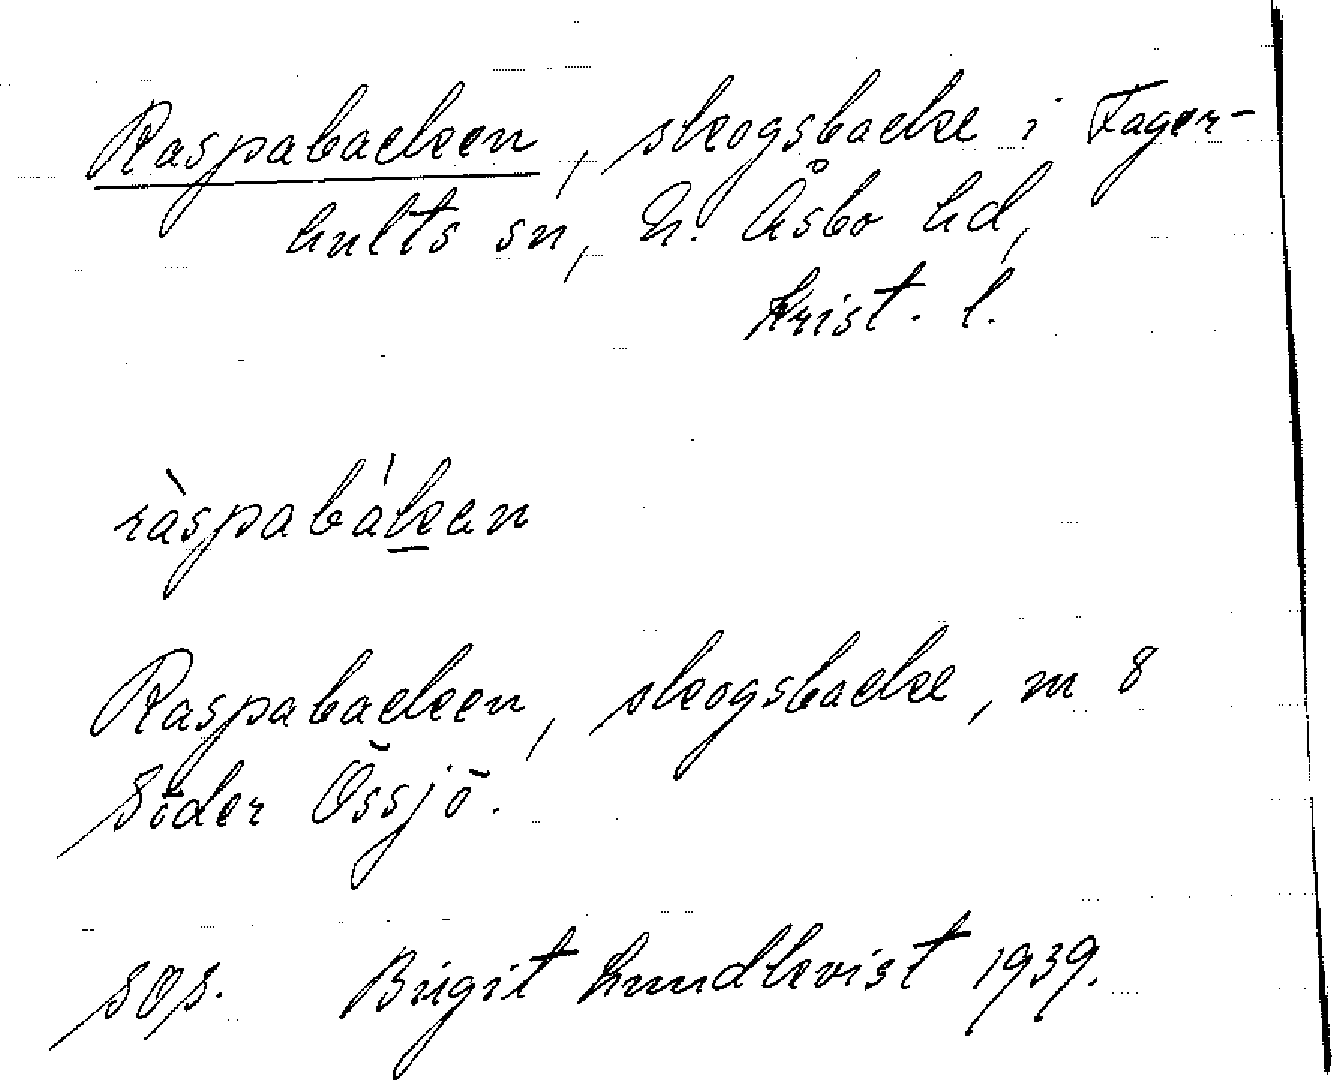 Raspabacken, skogsbacke i Fager-
hults sn, N. Åsbo hd,
Krist. l.
ràspabákan
Raspabacken, skogsbacke, m 8
Söder Össjö.
SOS. Birgit Lundkvist 1939.